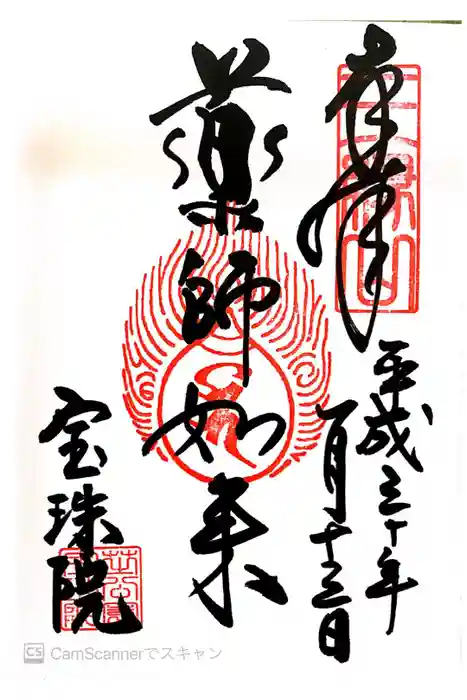 奉拝
平成三十年
一月十三日
薬師如来
宝珠院
CS CamScannerでスキャン